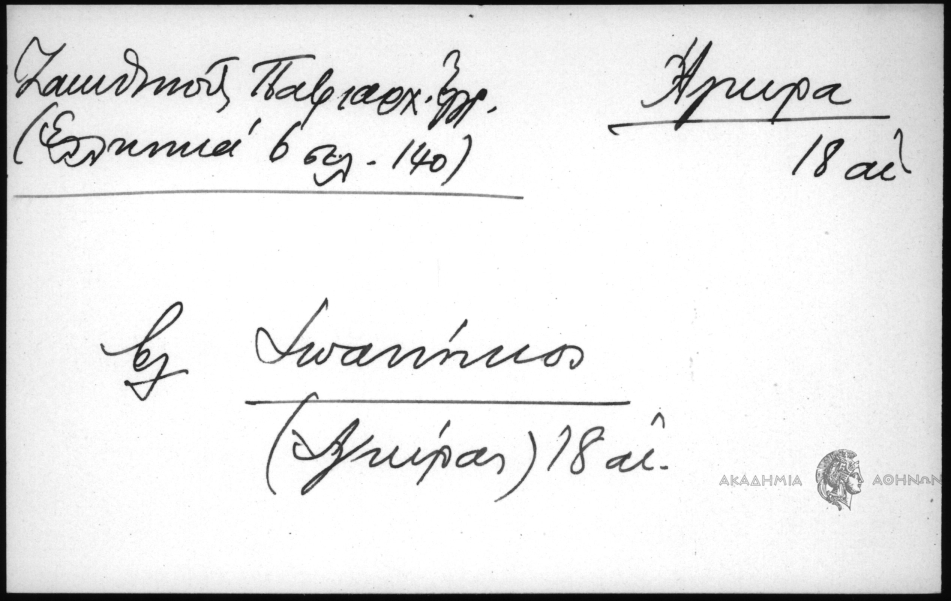 Ζακυθηνοῦ, Πατριαρχ. Ἔγγρ.
(Ἑλληνικά 6 σελ. 140)
Ἄγκυρα
18 αἰ
βλ Ἰωαννίκιος
(Ἀγκύρας) 18 αἰ.
ΑΚΑΔΗΜΙΑ ΑΘΗΝΩΝ